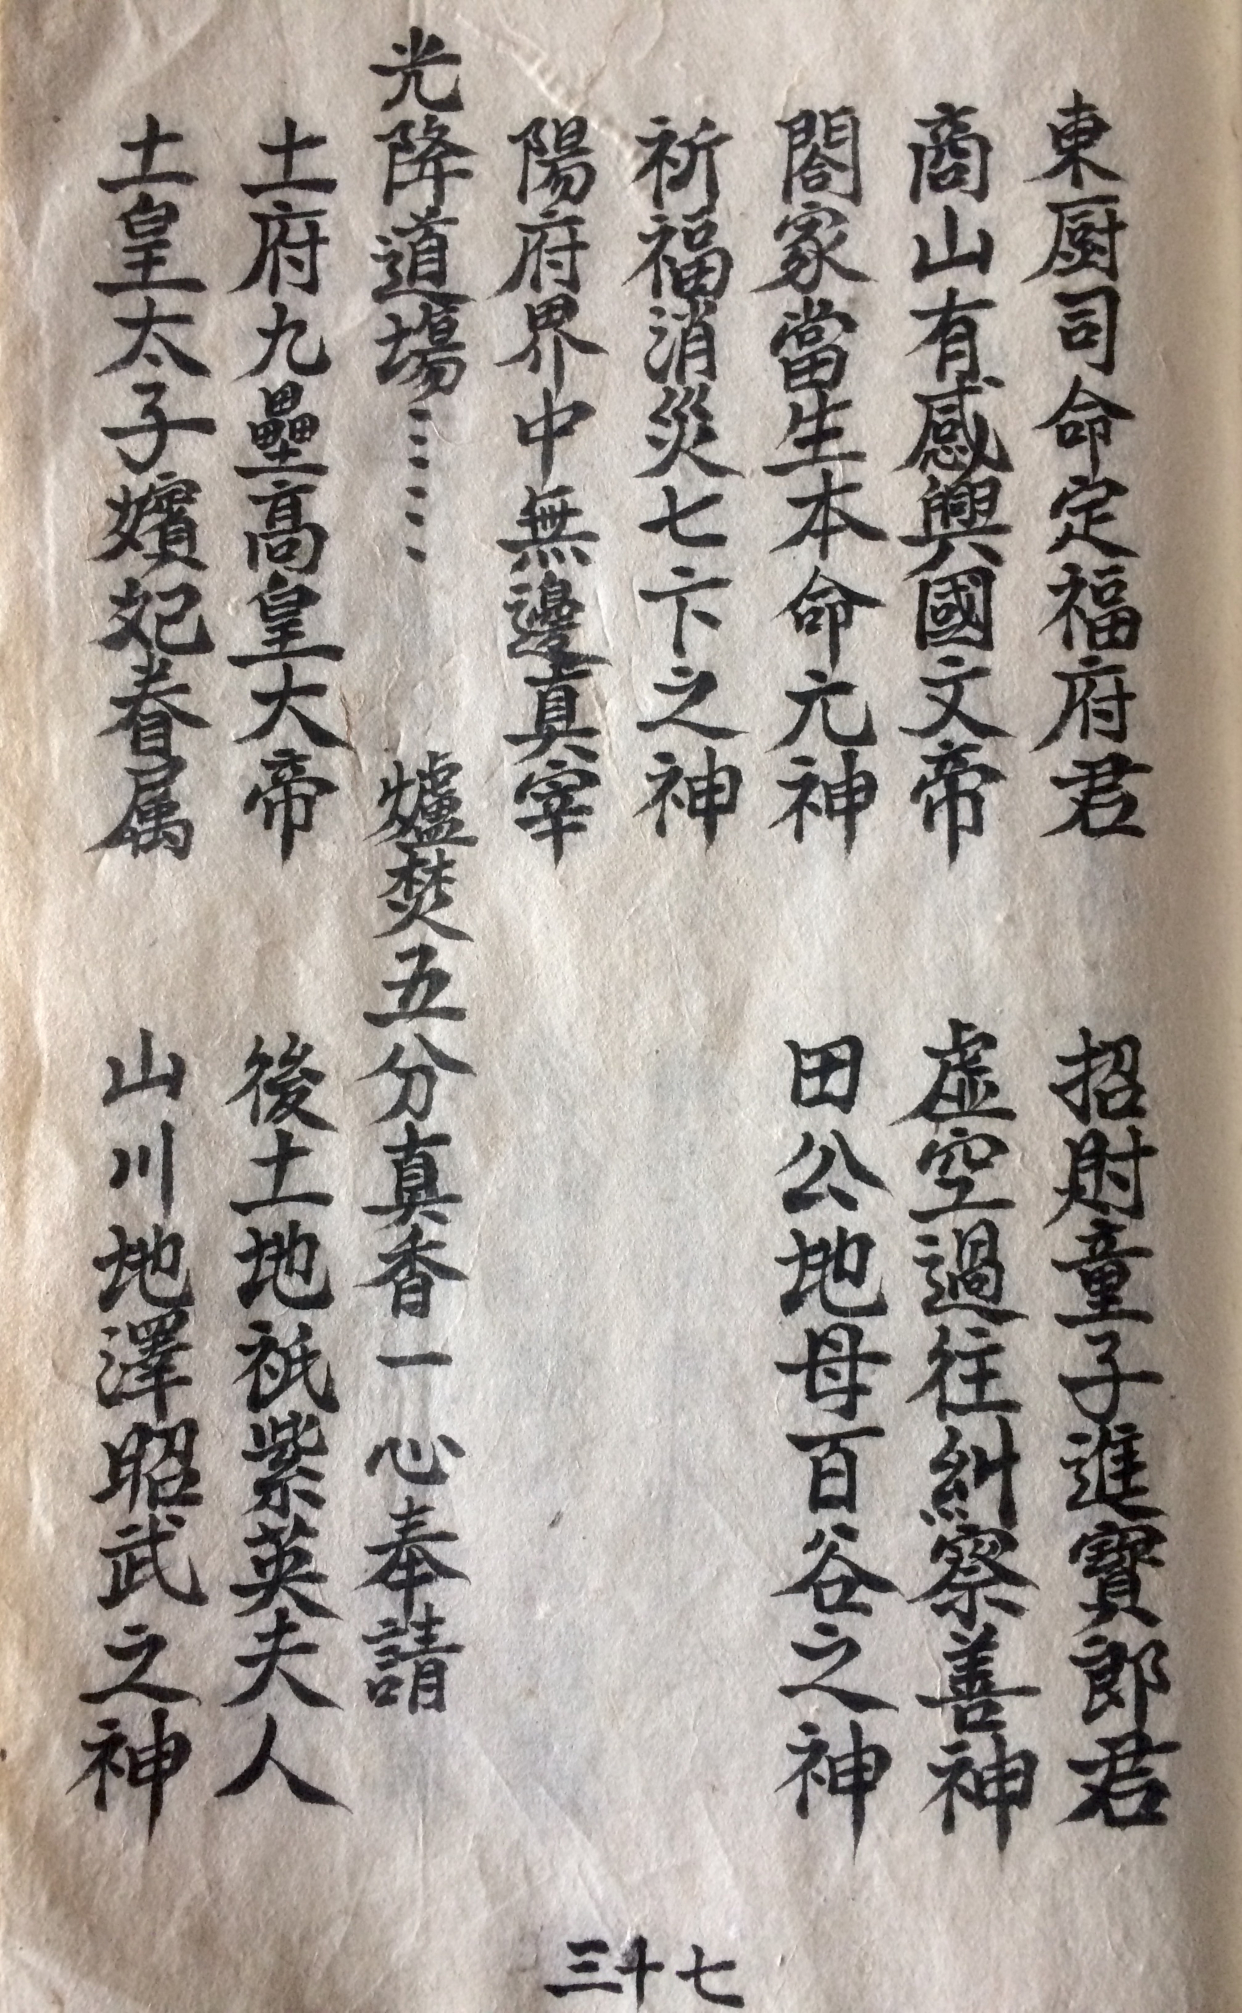 東厨司命定福府君　招財童子進寶郎君
商山有感興國文帝　虛空過往糾察善神
閤家當生本命元神　田公地母百谷之神
祈福消災七卞之神
陽府界中無邊真宰
光降道場⋮⋮⋮　爐焚五分真香一心奉請
土府九壘高皇大帝　後土地祇紫英夫人
土皇太子嬪妃眷属　山川地澤昭武之神
三十七